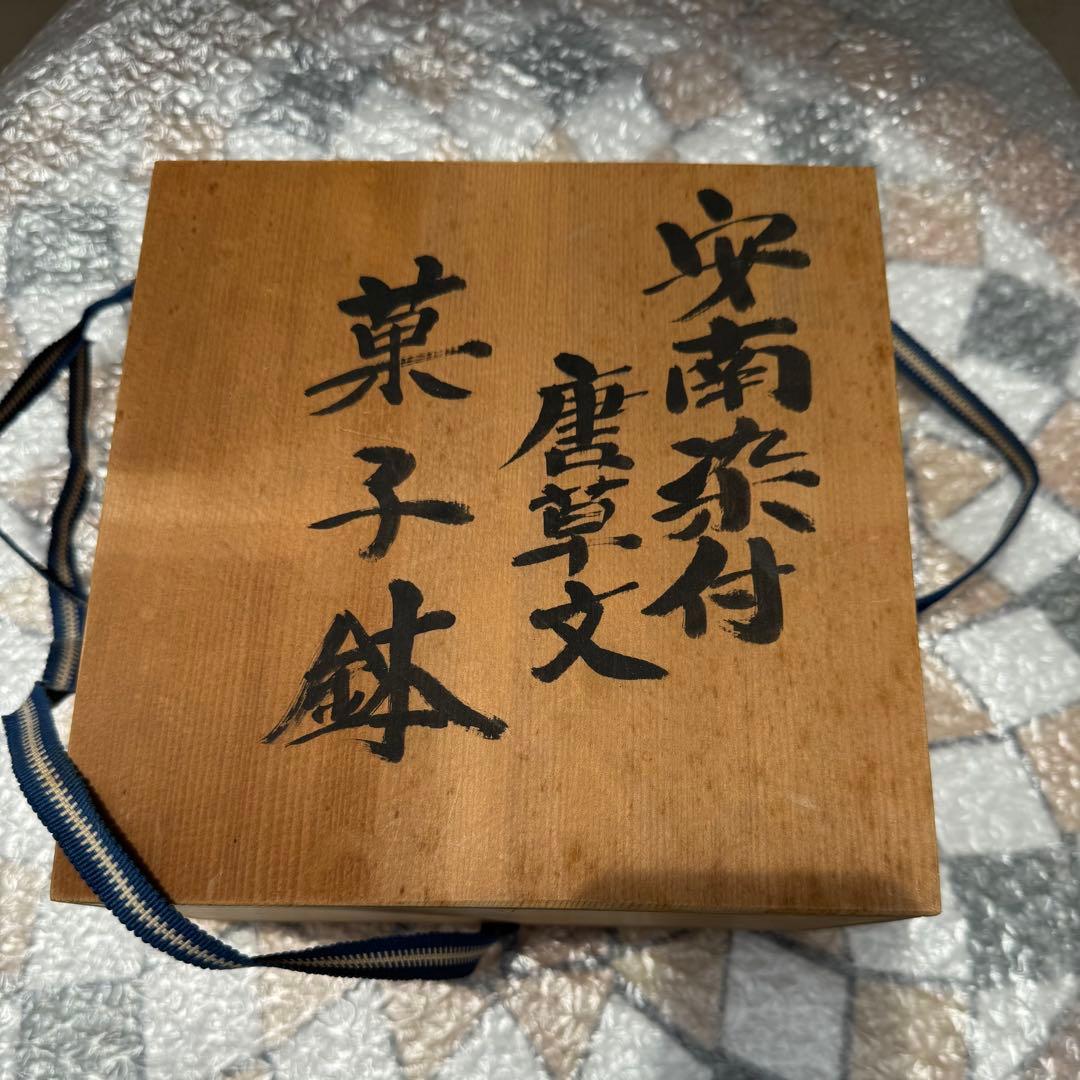 安南染付
唐草文
菓子鉢